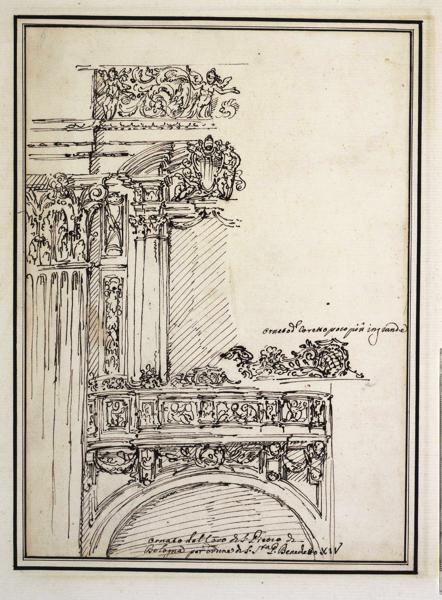 ornato d.l Coretto poco più in grande
ornato del Coro di S. Pietro di
Bologna per ordine di S. Stà P. Benedetto XIV